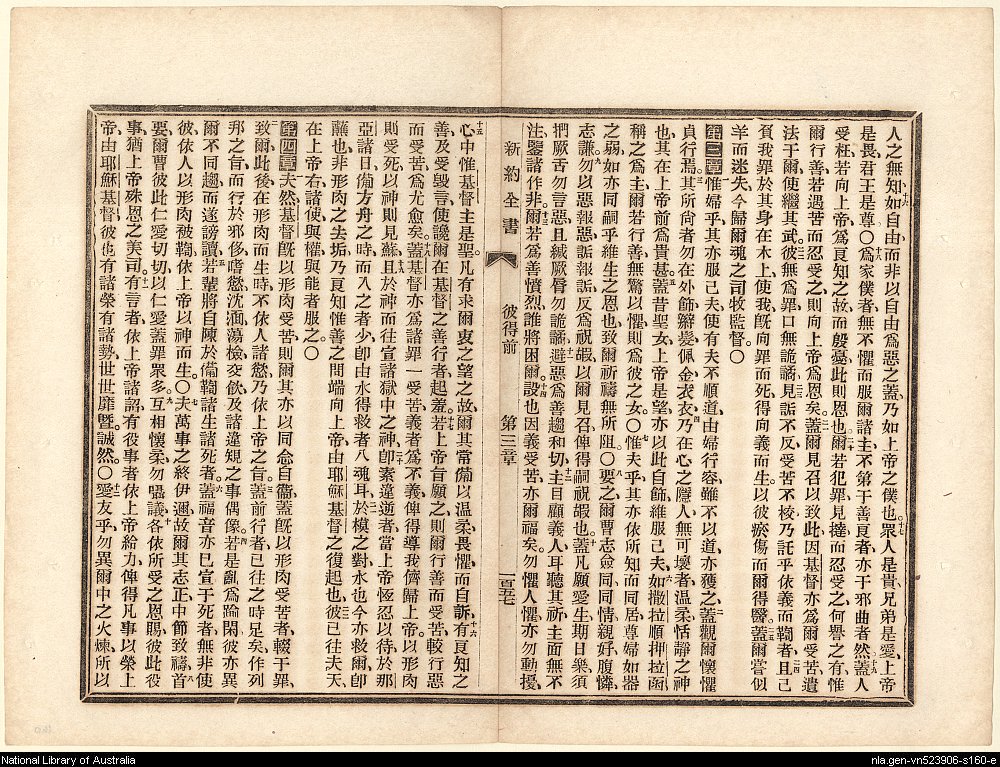 人之無知如自由而非以自由爲惡之蓋乃如上帝之僕也眾人是貴兄弟是愛上帝
是畏君王是尊〇爲家僕者無不懼而服爾諸主不第于善良者亦于邪曲者然蓋人
受枉若向上帝爲良知之故而殷憂此則恩也爾若犯罪見撻而忍受之何譽之有惟
爾行善若遇苦而忍受之則向上帝爲恩矣蓋爾見召以致此因基督亦爲爾受苦遺
法于爾使繼其武彼無爲罪口無詭譎見詬不反受苦不校乃託乎依義而鞫者且己
負我罪於其身在木上使我旣向罪而死得向義而生以彼瘀傷而爾得醫蓋爾嘗似
羊而迷失今歸爾魂之司牧監督〇
第三章惟婦乎其亦服己夫使有夫不順道由婦行容雖不以道亦獲之蓋觀爾懷懼
貞行焉其所尙者勿在外飾辮髮佩金衣衣乃在心之隱人無可壞者溫柔恬靜之神
也其在上帝前爲貴甚蓋昔聖女上帝是望亦以此自飾維服己夫如撒拉順押拉函
稱之爲主爾若行善無驚以懼則爲彼之女〇惟夫乎其亦依所知而同居尊婦如器
之弱如亦同嗣乎維生之恩也致爾祈禱無所阻〇要之爾曹志僉同同情親好腹憐
志謙勿以惡報惡詬報詬反爲祝嘏以爾見召俾得嗣祝嘏也蓋凡願愛生期日樂須
捫厥舌勿言惡且緘厥唇勿詭譎避惡爲善趨和切主目顧義人耳聽其祈主面無不
注鑒諸作非爾若爲善憤烈誰將困爾設也因義受苦亦爾福矣勿懼人懼亦勿動擾
新約全書 彼得前 第三章 一百五七
心中惟基督主是聖凡有求爾衷之望之故爾其常備以溫柔畏懼而自訴有良知之
善及受毀言使讒爾在基督之善行者起羞若上帝旨願之則爾行善而受苦較行惡
而受苦爲尤愈矣蓋基督亦爲諸罪一受苦義者爲不義俾得導我儕歸上帝以形肉
則受死以神則見蘇且於神而往宣諸獄中之神卽素違逆者當上帝恆忍以待於那
亞諸日備方舟之時而入之者少卽由水得救者八魂耳於模之對水也今亦救爾卽
蘸也非形肉之去垢乃良知惟善之問端向上帝由耶穌基督之復起也彼已往夫天
在上帝右諸使與權與能者服之〇
第四章夫然基督旣以形肉受苦則爾其亦以同念自衞蓋旣以形肉受苦者輟于罪
致爾此後在形肉而生時不依人諸慾乃依上帝之旨蓋前行者已往之時足矣作列
邦之旨而行於邪侈嗜慾沈湎蕩檢爻飲及諸違規之事偶像若是亂爲踰閑彼亦異
爾不同趨而遂謗讟若輩將自陳於備鞫諸生諸死者蓋福音亦已宣于死者無非使
彼依人以形肉被鞫依上帝以神而生〇夫萬事之終伊邇故爾其志正中節致禱首
要爾曹彼此仁愛切切以仁愛蓋罪眾多互相懷柔勿囁議各依所受之恩賜彼此役
事猶上帝殊恩之美司有言者依上帝諸詔有役事者依上帝給力俾得凡事以榮上
帝由耶穌基督彼也有諸榮有諸勢世世靡曁誠然〇愛友乎勿異爾中之火煉所以
National Library of Australia
nla.gen-vn523906-s160-e